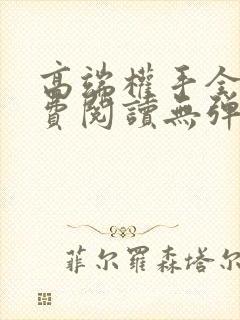 高端權手全
費閱讀無彈
菲尔羅森塔尔